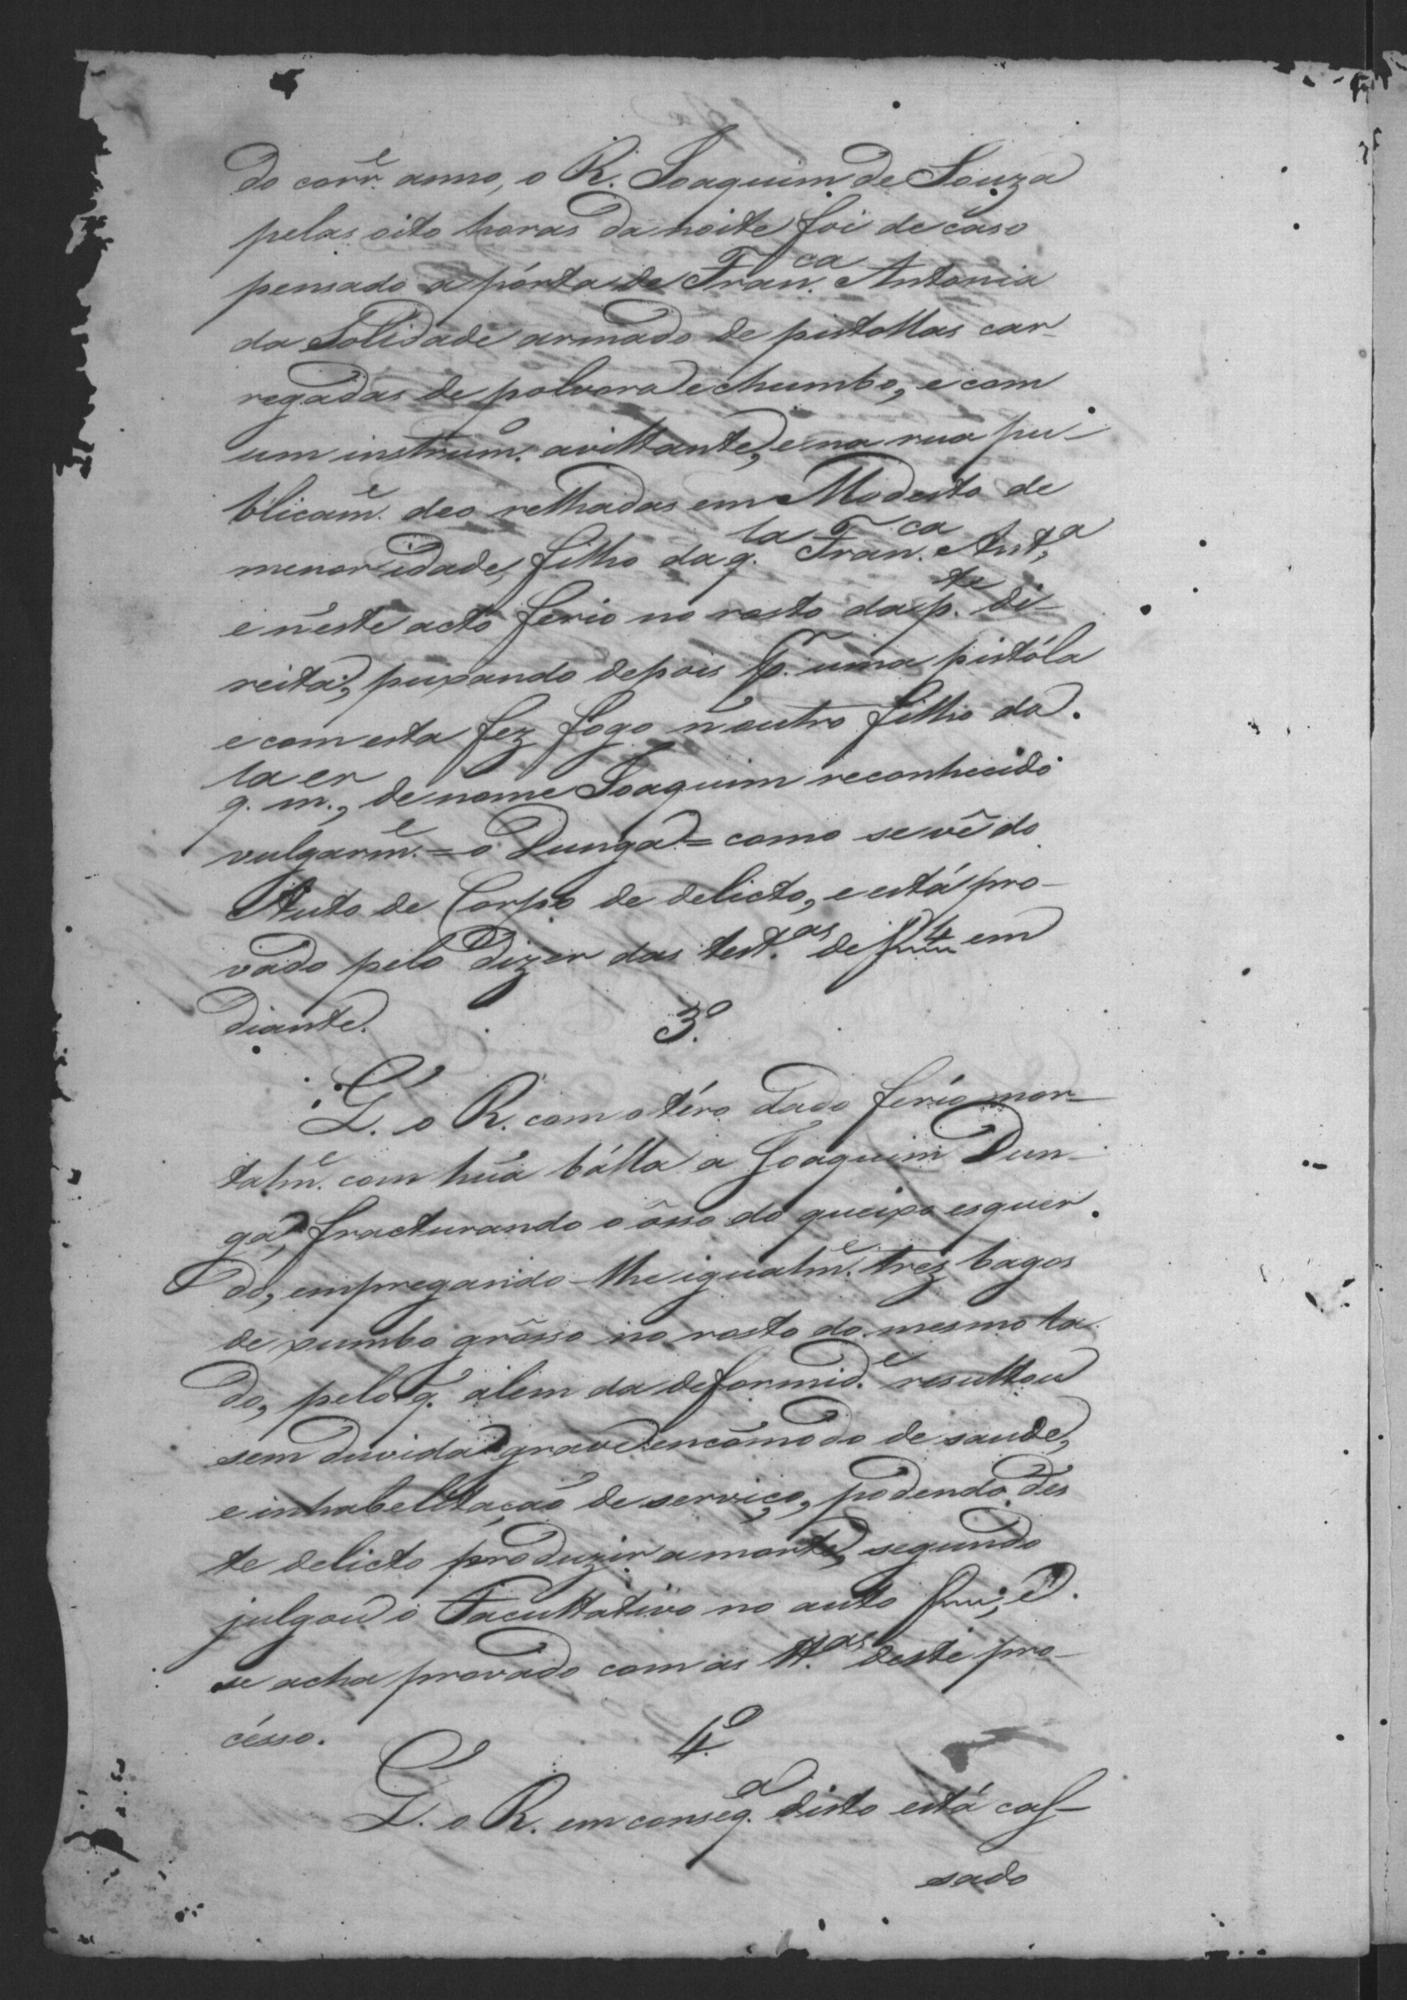 do corr.e anno, o R. Joaquim de Souza
pelas oito horas da noite foi de caso
pensado a pórta de Fran.ca Antonia
da Solidade armado de pistollas car-
regadas de polvora e chumbo, e com
um instrum.o aviltante, e na rua pu-
blicam.e deo relhadas em Modesto de
menor idade, filho da q.la Fran.ca Ant.a
e nèste acto ferio no rosto da p.te di-
reita, puxando depois p.r uma pistóla
e com esta fez fogo n'outro filho da
q.la m.er, de nome Joaquim reconhecido
vulgarm.e = o Dunga = como se vê do
Auto de Corpo de delicto, e está pro-
vado pelo dizer das test.as de f 4 em
diante.
3.o
P. q. o R. com o tiro dado ferío mor-
talm.e com hũa bálla a Joaquim Dun-
ga, fracturando o ôsso do queixo esquer-
do, empregando-lhe igualm.e trez bagos
de xumbo grôsso no rosto do mesmo la-
do, pelo q. alem da deformid.e resultou
sem duvida grave encômodo de saude,
e inhabelitação de serviço, podendo des
te delicto produzir a morte, segundo
julgou o Facultativo no auto f , e
se acha provado com as tt.as deste pro-
césso.
4.o
P. q. o R. em conseq.a disto está cas-
sado